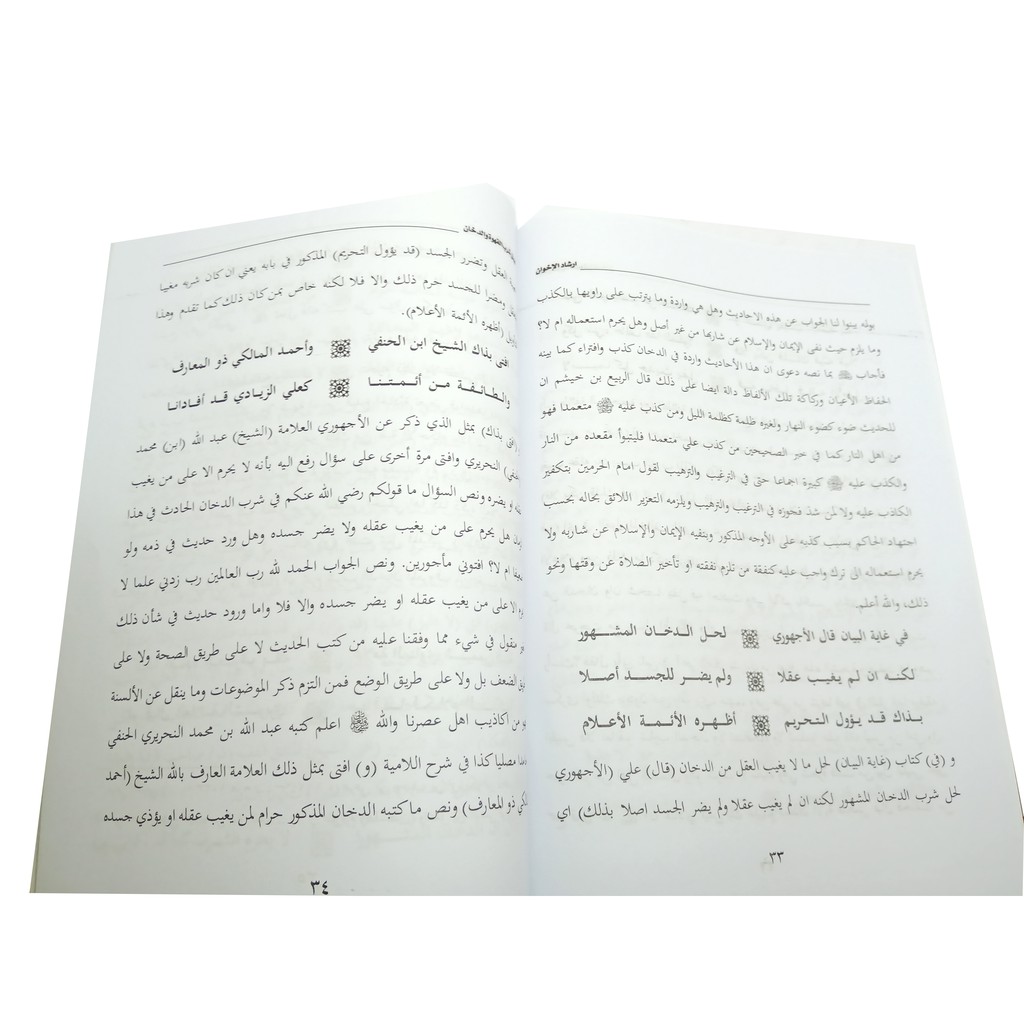 ارشاد الاخوان
بوله بينوا لنا الجواب عن هذه الاحاديث وهل هي واردة وما يترتب على راويها بالكذب
وما يلزم حيث نفى الإيمان والإسلام عن شاربها من غير أصل وهل يحرم استعماله ام لا؟
فأجاب ﷺ بما نصه دعوى ان هذا الأحاديث واردة في الدخان كذب وافتراء كما بينه
الحفاظ الأعيان وركاكة تلك الألفاظ دالة ايضا على ذلك قال الربيع بن خيشم ان
للحديث ضوء كضوء النهار ولغيره ظلمة كظلمة الليل ومن كذب عليه ﷺ متعمدا فهو
من اهل النار كما في خبر الصحيحين من كذب علي متعمدا فليتبوأ مقعده من النار
والكذب عليه ﷺ كبيرة اجماعا حتى في الترغيب والترهيب لقول امام الحرمين بتكفير
الكاذب عليه ولا لمن شذ فجوزه في الترغيب والترهيب ويلزمه التعزير اللائق بحاله بحسب
اجتهاد الحاكم بسبب كذبه على الأوجه المذكور وبنفيه الإيمان والإسلام عن شاربه ولا
يحرم استعماله الى ترك واجب عليه كنفقة من تلزم نفقته او تأخير الصلاة عن وقتها ونحو
ذلك، والله أعلم.
في غاية البيان قال الأجهوري لحل الدخان المشهور
لكنه ان لم يغيب عقلا ولم يضر للجسد أصلا
بذاك قد يؤول التحريم أظهره الأئمة الأعلام
و (في) كتاب (غاية البيان) لحل ما لا يغيب العقل من الدخان (قال) علي (الأجهوري
لحل شرب الدخان المشهور لكنه ان لم يغيب عقلا ولم يضر الجسد اصلا بذلك) اي
٣٣
القهوة والدخان
العقل وتضرر الجسد (قد يؤول التحريم) المذكور في بابه يعني ان كان شربه مغيبا
ومضرا للجسد حرم ذلك والا فلا لكنه خاص بمن كان ذلك كما تقدم وهذا
(أظهره الأئمة الأعلام).
افتى بذاك الشيخ ابن الحنفي وأحمد المالكي ذو المعارف
والطائفة من أئمتنا كعلي الزيادي قد أفادانا
(افتى بذاك) بمثل الذي ذكر عن الأجهوري العلامة (الشيخ) عبد الله (ابن) محمد
النحريري وافتى مرة أخرى على سؤال رفع اليه بأنه لا يحرم الا على من يغيب
او يضره ونص السؤال ما قولكم رضي الله عنكم في شرب الدخان الحادث في هذا
هل يحرم على من يغيب عقله ولا يضر جسده وهل ورد حديث في ذمه ولو
ام لا؟ افتوني مأجورين. ونص الجواب الحمد لله رب العالمين رب زدني علما لا
الا على من يغيب عقله او يضر جسده والا فلا واما ورود حديث في شأن ذلك
منقول في شيء مما وفقنا عليه من كتب الحديث لا على طريق الصحة ولا على
الضعف بل ولا على طريق الوضع فمن التزم ذكر الموضوعات وما ينقل عن الألسنة
من اكاذيب اهل عصرنا والله ﷻ اعلم كتبه عبد الله بن محمد النحريري الحنفي
مصليا كذا في شرح اللامية (و) افتى بمثل ذلك العلامة العارف بالله الشيخ (أحمد
ذو المعارف) ونص ما كتبه الدخان المذكور حرام لمن يغيب عقله او يؤذي جسده
٣٤